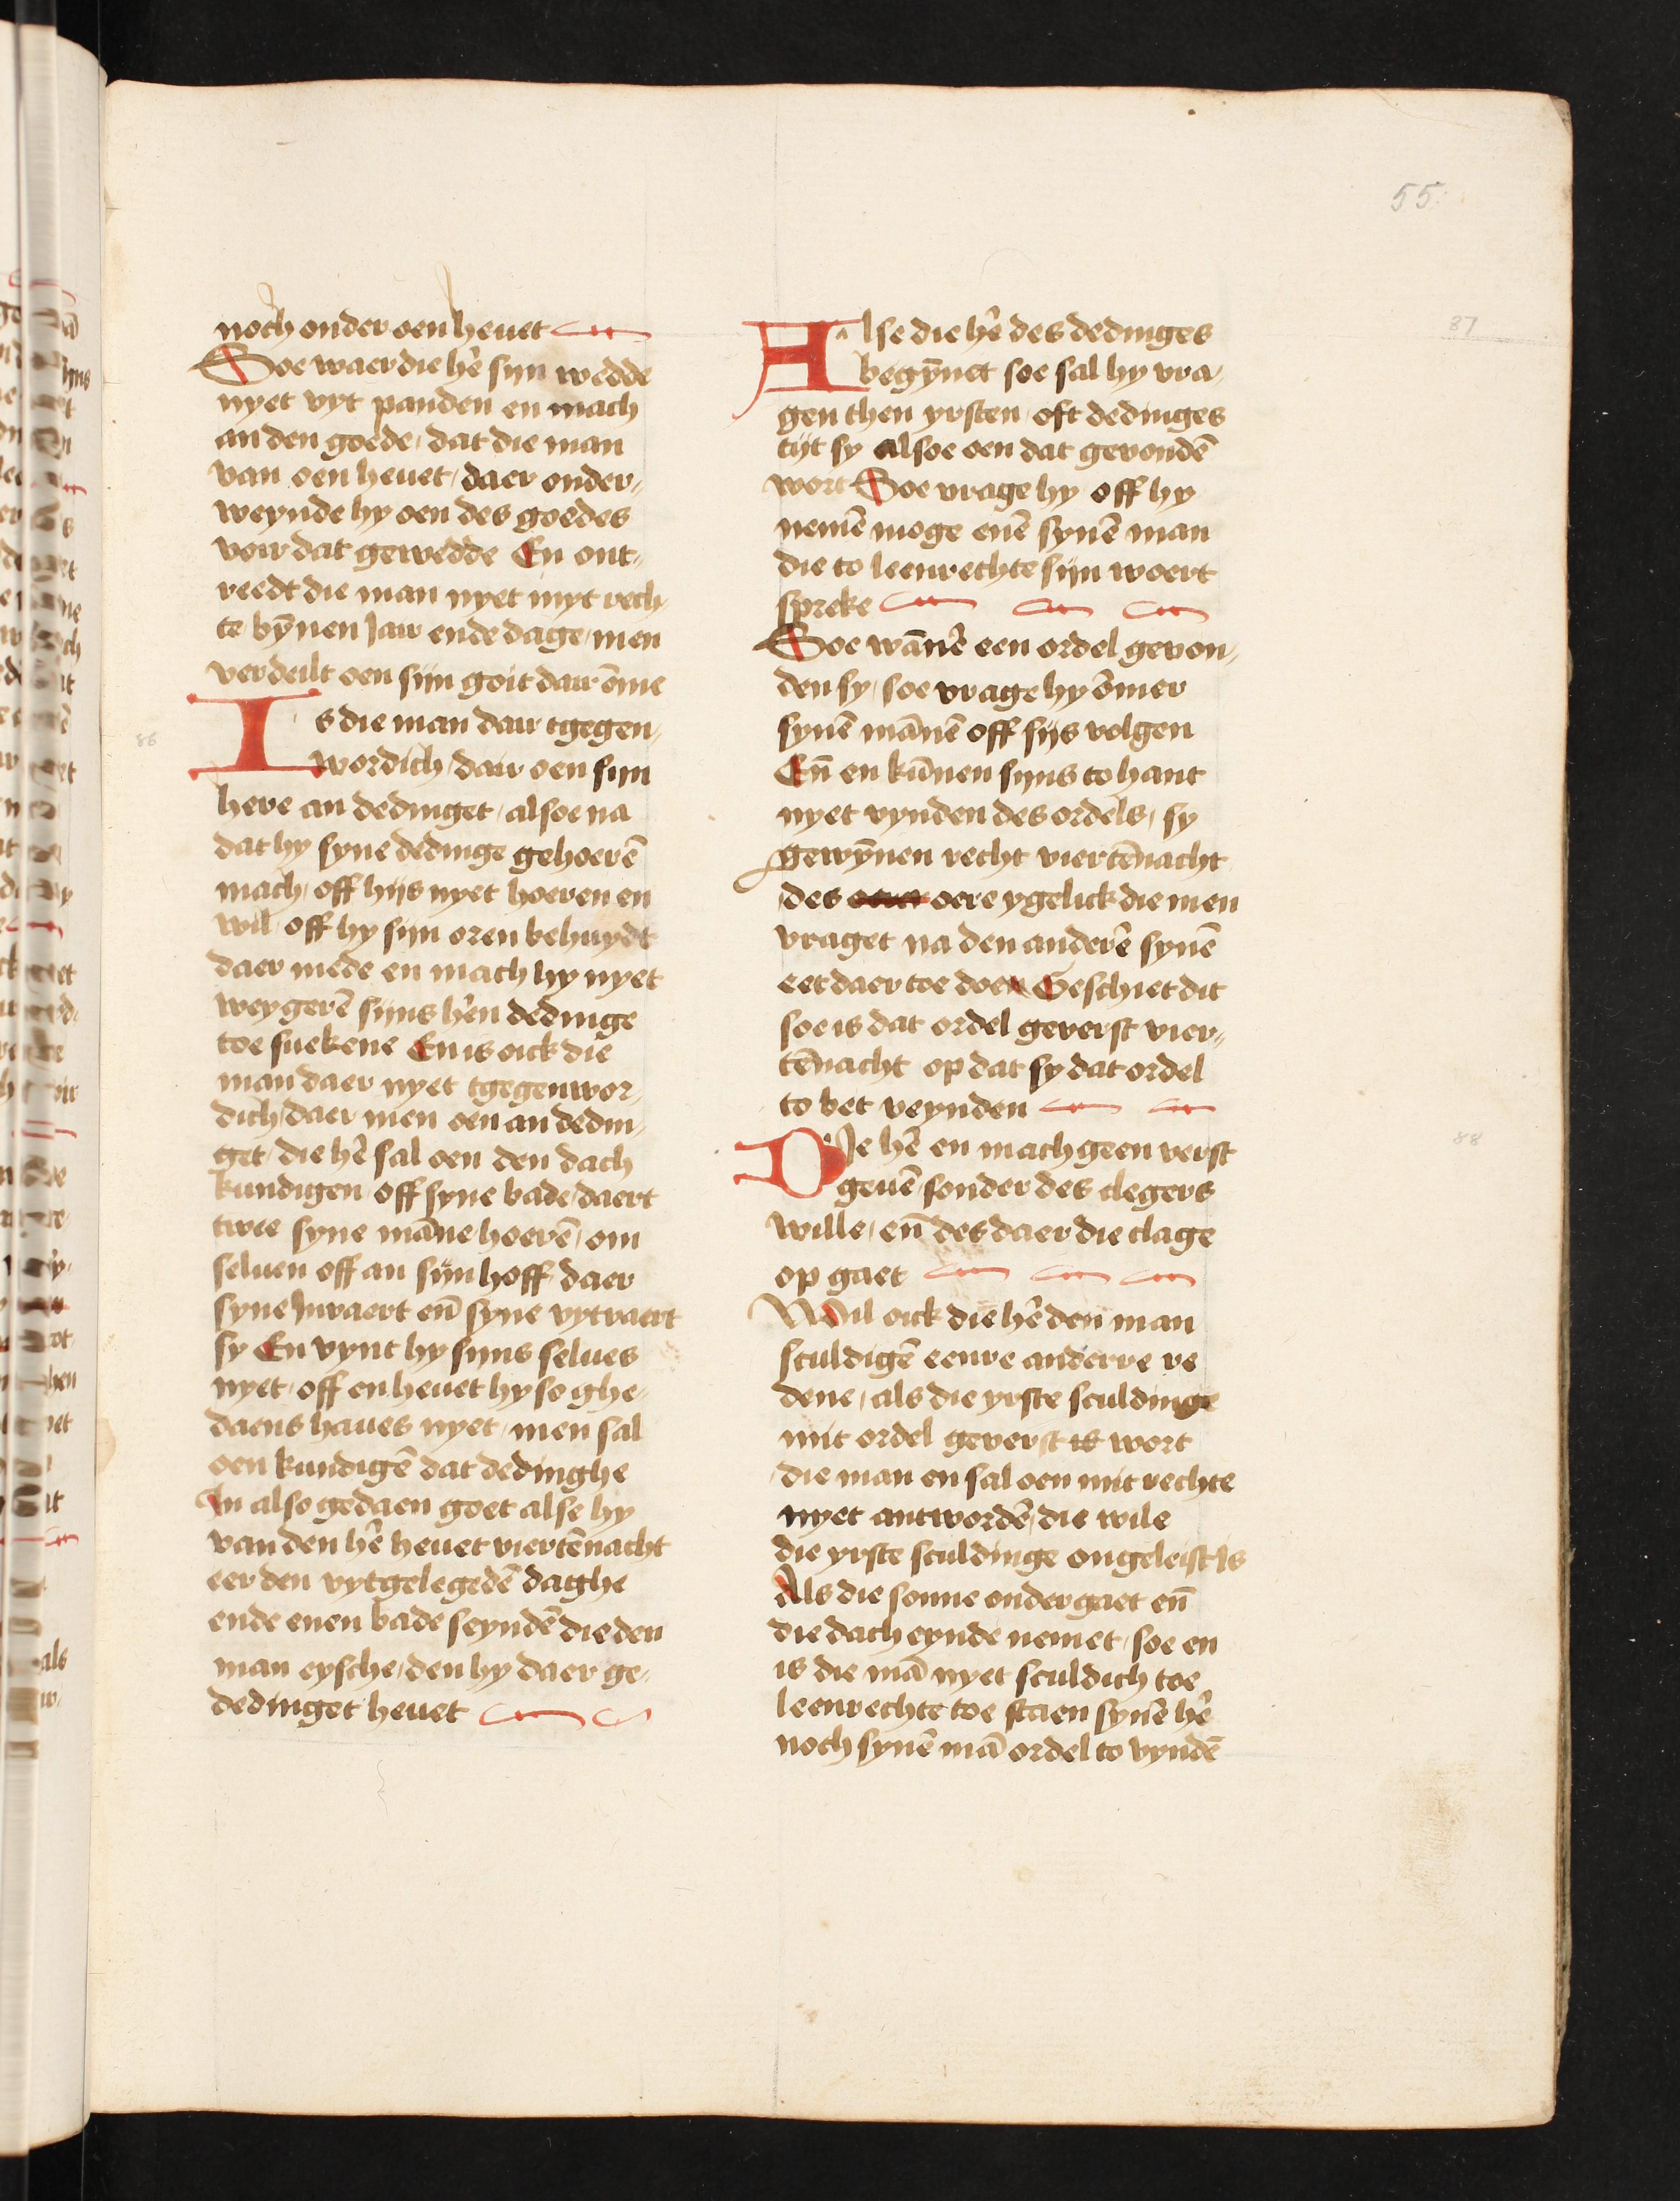 55
noch onder oen heuet
Soe waer die hẽ sijn wedde
nyet vyt panden en mach
an den goede / dat die man
van oen heuet / daer onder„
weynde hy oen des goedes
voir dat gewedde En ont„
reedt die man nyet myt rech„
te bȳnen Jair ende dage / men
verdeilt oen sijn goit dair ōme
86
Is die man dair tgegen„
wordich / dair oen sijn
here an dedinget / alsoe na
dat hy syne dedinge gehoerē
mach / off hijs nyet hoeren en
wil / off hy sijn oren behuydt
daer mede en mach hy nyet
weygerē sijns hēn dedinge
toe suekene En is oick die
man daer nyet tgegenwor„
dich / daer men oen an dedin„
get / die hẽ sal oen den dach
kundigen off syne bade / daert
twee syne māne hoerē / om
seluen off an sijn hoff / daer
syne Jnvaert eñ syne vytvaert
sy En vynt hy sijns selues
nyet / off en heuet hy so ghe„
daens haues nyet / men sal
oen kundigē dat dedinghe
In also gedaen goet alse hy
van den hẽ heuet viertēnacht
eer den vytgelegedē daghe
ende enen bade seyndē die den
man eysche / den hy daer ge„
dedinget heuet
87
Alse die hẽ des dedinges
begȳnet soe sal hy vra„
gen then yrsten / oft dedinges
tijt sy alsoe oen dat gevondē
wort Soe vrage hy off hy
nemē moge enē synē man
die to leenrechte sijn woert
spreke
Soe wānē een ordel gevon„
den sy / soe vrage hy ōmer
synē mānē off sijs volgen
Eñ en kūnen sijns to hant
nyet vynden des ordels / sy
gewȳnen recht viertēnacht
des oere ygelick die men
vraget na den anderē synē
eet daer toe doen Geschiet dit
soe is dat ordel geverst vier„
tēnacht op dat sy dat ordel
to bet veynden
88
DJe hẽ en mach geen verst
geuē / sonder des clegers
wille / eñ des daer die clage
op gaet
Wil oick die hẽ den man
sculdigē eenre anderre re
dene / als die yrste sculdinge
mit ordel geverst is wort
die man en sal oen mit rechte
nyet antwordē / die wile
die yrste sculdinge ongeleist is
Als die sonne onder gaet eñ
die dach eynde nemet / soe en
is die mā nyet sculdich toe
leenrechte toe staen synē hẽ
noch synē mā ordel to vyndē